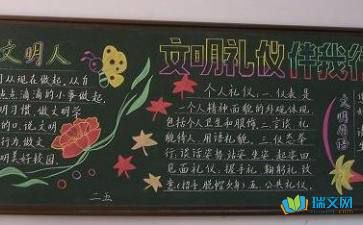 文明人
从现在做起,从自
点点滴滴的小事做起,
明习惯,做文明学
的口,说文明
行为,做文
明美好校园。
二五
文明礼仪伴我行
个人礼仪,一、仪表是
一个人精神面貌的外观体现,
包括个人卫生和服饰。二、言谈、礼
貌待人,用语礼貌。三、仪态举
行:谈话姿势站姿、坐姿
见面礼仪,握手礼、鞠躬礼、致
五、公共礼仪,
文明用语
瑞文网